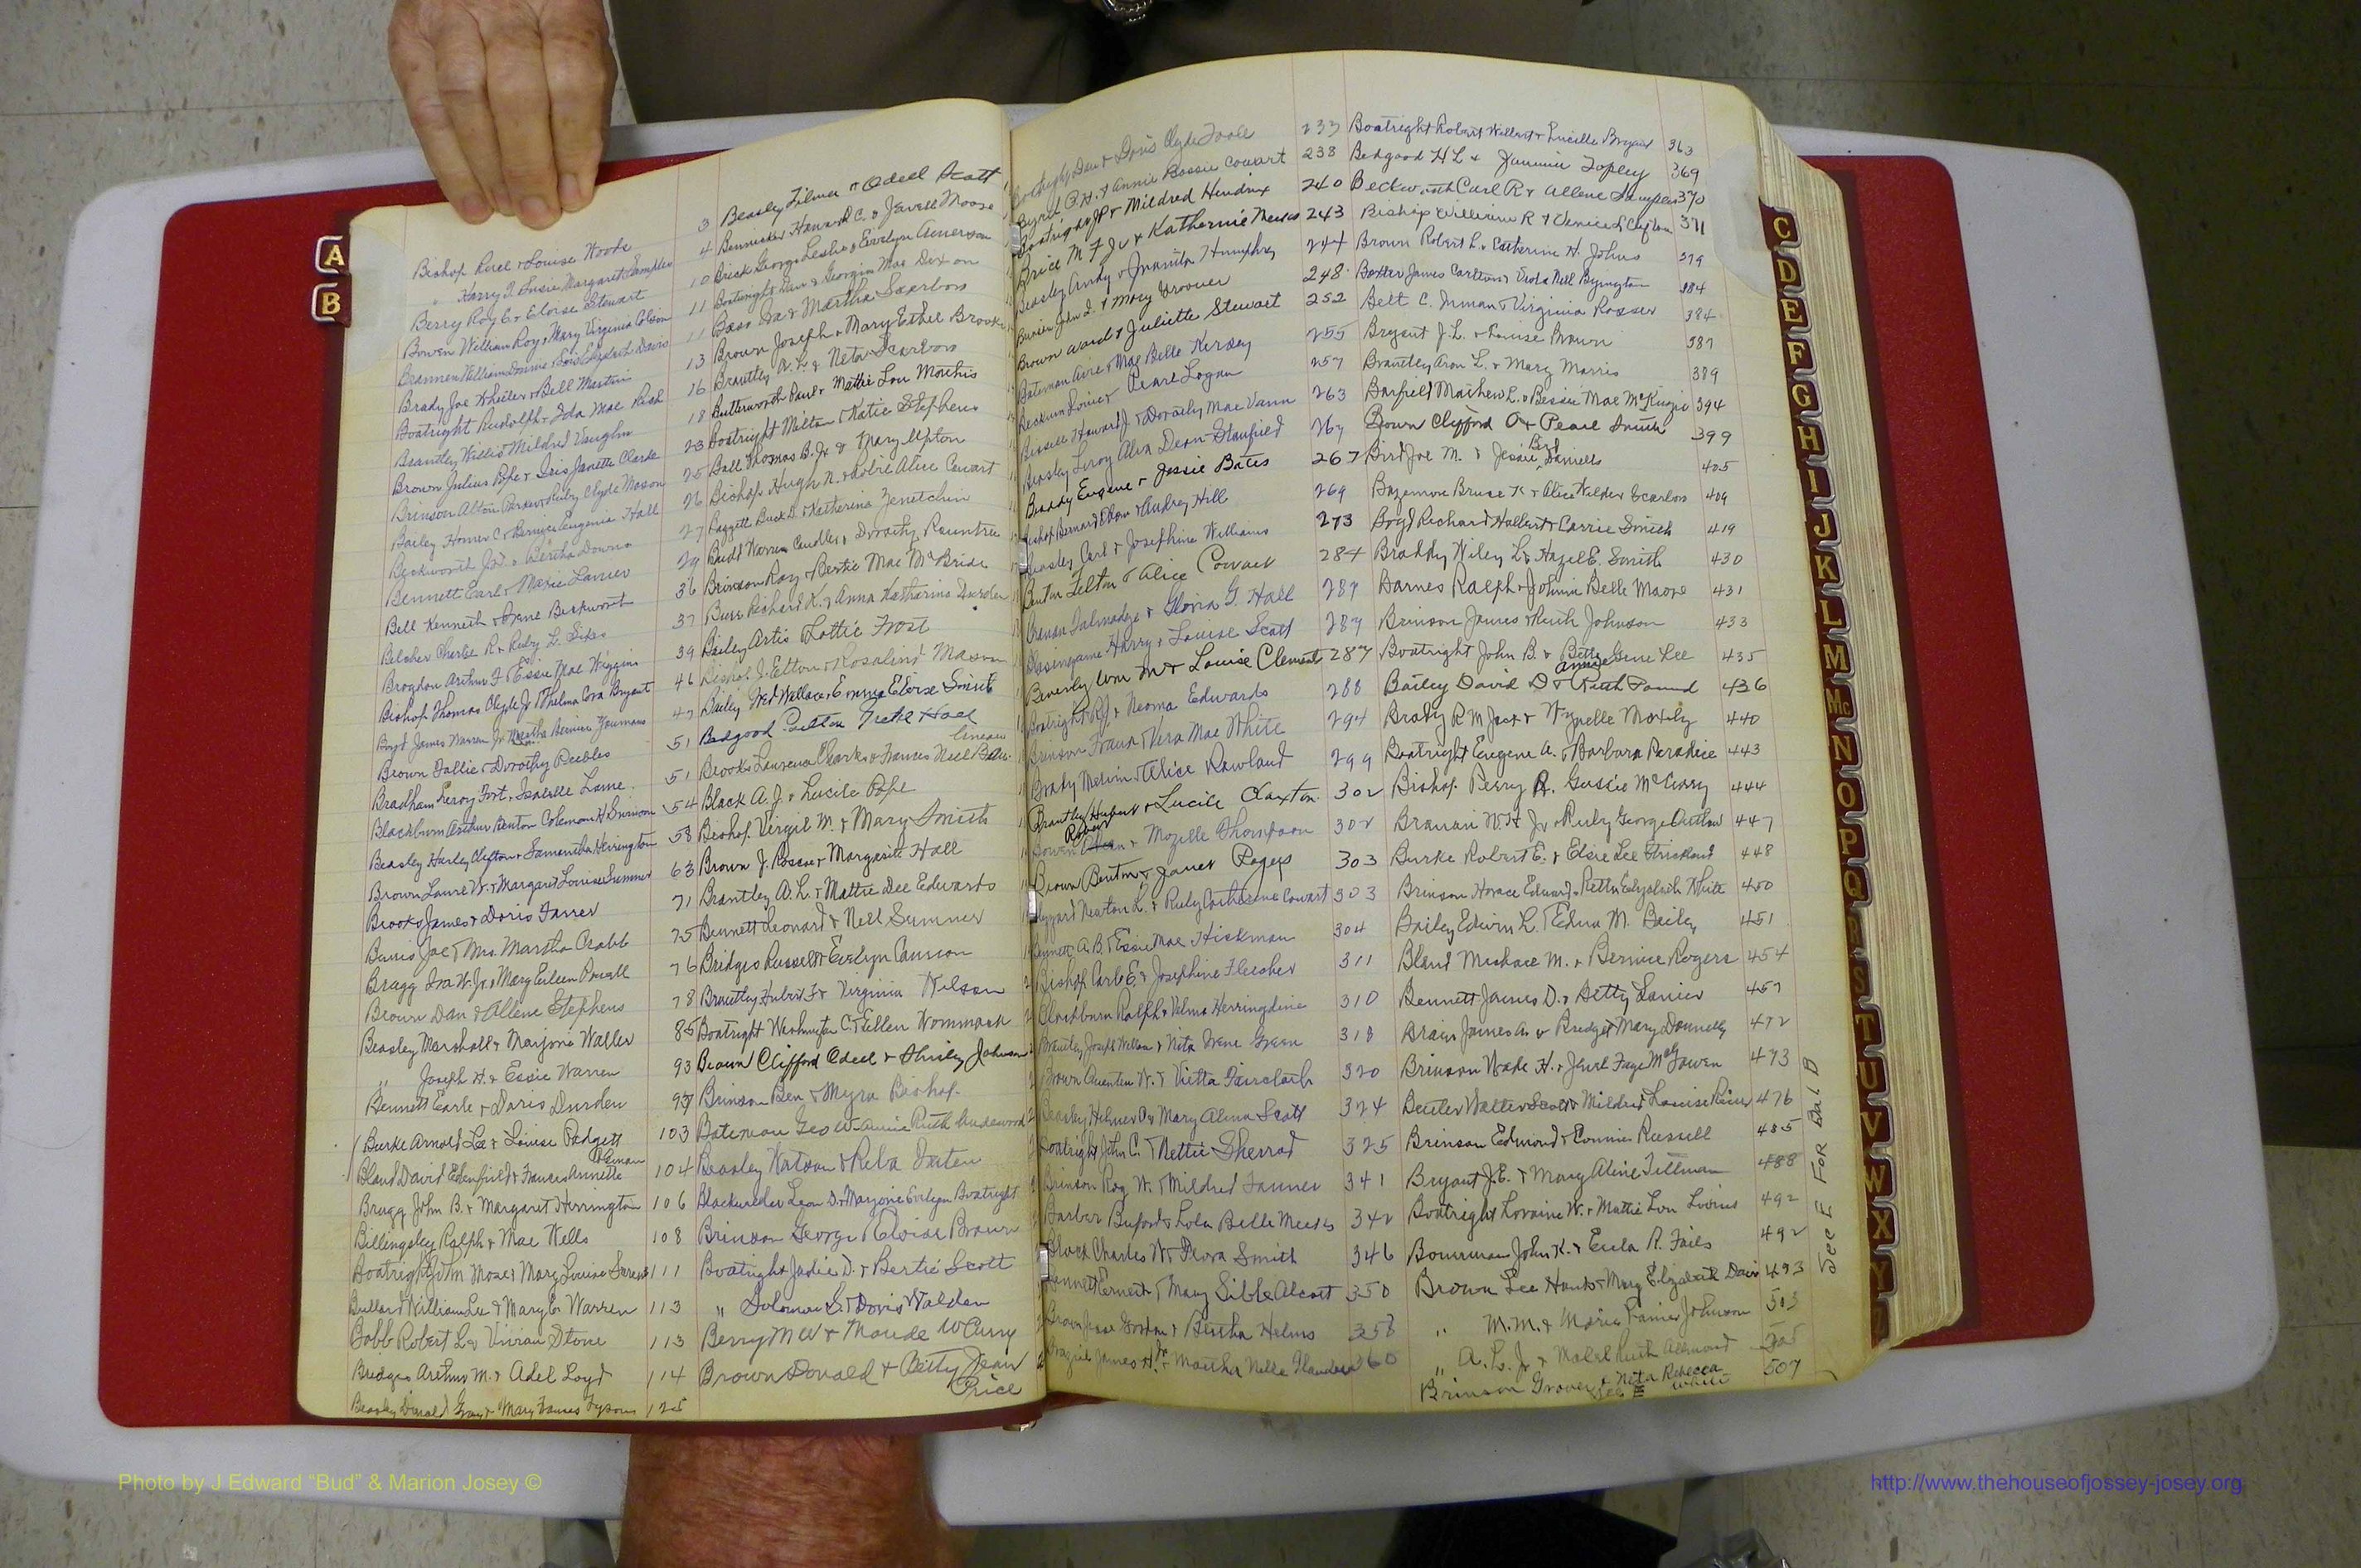 A
B
Bishop & Louise Woods 3
" Harry & Susie Margaret 4
Berry Roy E & Eloise Stewart 10
Bowen William Roy & Mary Virginia Colson 11
Brannen William Donnie & Lois Elizabeth Davis 11
Brady Joe Wheeler & Bell Martin 13
Boatright Rudolph & Ida Mae Rish 16
Brantley Willis & Mildred Vaughn 18
Brown Julius Pope & Iris Janette Clarke 23
Brinson Alton Parker & Ruby Clyde Mason 25
Bailey Homer C & Bernice Eugenia Hall 26
Beckworth J.D. & Bertha Downs 27
Bennett Earl & Maxie Lanier 29
Bell Kenneth & Beckworth 36
Belcher Charlie R & Ruby L. Sikes 37
Brogdon Arthur F & Essie Mae Wiggins 39
Bishop Thomas Clyde Jr & Thelma Cora Bryant 46
Boyd James Warren Jr & Martha Bernice Youmans 47
Brown Tallie & Dorothy Peebles 51
Bradham Leroy Fort & Isabelle 51
Blackburn Arthur Benton Coleman & 54
Beasley Harley Clifton & Samantha Herrington 58
Brown & Margaret Louise Sumner 63
Brooks James & Doris Farrer 71
Joe & Mrs. Martha Crabb 75
Bragg Ira W. Jr. & Mary Eileen Powell 76
Brown Dan & Allene Stephens 78
Beasley Marshall & Marjorie Waller 85
" Joseph H. & Essie Warren 93
Bennett Earle & Doris Durden 97
Burke Arnold Lee & Louise Padgett 103
Bland David Edenfield & Frances Annette 104
Bragg John B. & Margaret Herrington 106
Billingsley Ralph & Mae Wells 108
Boatright Jim Mose & Mary Louise 111
Bullard William Lee & Mary E. Warren 113
Bobb Robert L & Vivian Stone 113
Bridges Arthur M. & Adel Loyd 114
Beasley Donald Gray & Mary Frances Tyson 125
Beasley Zilmer & Odell Scott
Howard C. & Jewell Moore
Brick George Leslie & Evelyn Amerson
Boatwright & Georgia Mae Dixon
Bass & Martha Scarboro
Brown Joseph & Mary Esther Brooks
Brantley A. L. & Neta Scarboro
Butterworth Paul & Mattie Lou Mathis
Boatright Milton & Katie Stephens
Ball Thomas B. Jr & Mary Upton
Bishop Hugh N. & Robie Alice Cowart
Baggett Buck D. & Katherine
Budd Warren Candler & Dorothy Rountree
Brinson Roy & Bertie Mae McBride
Burr Richard K. & Anna Katharine Durden
Bailey Artis & Lottie Frost
Bishop J. Elton & Rosalind Mason
Bailey Fred Wallace & Emma Eloise Smith
Bedgood
Brooks Laurence Charles & Frances Nell
Black A. J. & Lucile Pope
Bishop Virgil M. & Mary Smith
Brown J. Roscoe & Margarite Hall
Brantley A. L. & Mattie Dee Edwards
Bennett Leonard & Nell Sumner
Bridges Russell & Evelyn Cannon
Brantley Hubert F & Virginia Wilson
Boatright Washington C. & Ellen Wommack
Brown Clifford Odell & Shirley Johnson
Brinson Ben & Myra Bishop
Bateman Geo W. & Annie Ruth Underwood
Beasley Watson & Reba
Blackwelder Leon D. & Marjorie Evelyn Boatright
Brinson George & Eloise Brown
Boatright Judie D. & Bertie Scott
" Solomon S. & Doris Walden
Berry M W & Maude McCurry
Brown Donald & Betty Jean
Price
Boatright & Doris Clyde Toole 233
Byrd P. H. & Annie Bessie Cowart 238
Boatright J P & Mildred Hendrix 240
Brice M F Jr & Katharine Meeks 243
Beasley & Juanita Humphrey 244
John L. & Mary Groover 248
Brown Ward & Juliette Stewart 252
Bateman & Mae Belle Kersey 255
& Pearl Logan 257
Howard J. & Dorothy Mae Vann 263
Beasley Leroy & Alva Dean Stanfield 267
Braddy Eugene & Jessie Bates 267
Bishop Bernard & Audrey Hill 269
Beasley Carl & Josephine Williams 273
Benton Felton & Alice Cowart 284
Talmadge & Gloria G. Hall 287
Blasingame Harry & Louise Scott 287
Beverly Wm M & Louise Clements 287
Boatright R J & Neoma Edwards 288
Brinson Frank & Vera Mae White 294
Brady Melvin & Alice Rowland 299
Brantley Hubert & Lucile Claxton 302
Bowen Robert & Mozelle Thompson 302
Brown Benton & Janet Rogers 303
Newton L. & Ruby Catherine Cowart 303
Bennett A. B. & Essie Mae Hickman 304
Bishop Carl E. & Josephine Fletcher 311
Blackburn Ralph & Velma Herringdine 310
Brantley Joseph William & Nita Irene Green 318
Brown Quenten W. & Vietta Faircloth 320
Beasley Helmer D & Mary Alma Scott 324
Boatright John C. & Nettie Sherrod 325
Brinson Roy W. & Mildred Tanner 341
Barber Buford & Lola Belle Meeks 342
Black Charles W. & Flora Smith 346
Bennett Ernest & Mary Sible Alcott 350
Brown Jesse Gordon & Bertha Helms 358
James H. Jr & Martha Nelle Flanders 360
Boatright Robert Willard & Lucille Bryant 363
Bedgood H L & Jimmie Topley 369
Beckworth Carl R & Allene 370
Bishop William R & Venice L Clifton 371
Brown Robert L. & Catherine H. Johns 379
Baxter James Carlton & Veda Nell Byington 384
Belt C. Inman & Virginia Rosser 384
Bryant J. L. & Louise Brown 387
Brantley Aron L. & Mary Morris 389
Barfield Mathew L. & Bessie Mae McKinzie 394
Brown Clifford O & Pearl Smith 399
Bird Joe M. & Jessie Bird Daniells 405
Bazemore Bruce K & Alice Wilder Scarboro 409
Boyd Richard Halbert & Carrie Smith 419
Braddy Wiley L & Hazel E. Smith 430
Barnes Ralph & Johnnie Belle Moore 431
Brinson James & Ruth Johnson 433
Boatright John B. & Betty Gene Lee 435
Bailey David D & Annie Ruth Pound 436
Brady R M Jack & Wynelle Mosely 440
Boatright Eugene A. & Barbara Paradice 443
Bishop Perry R. Gussie McCrary 444
Branan W. H Jr & Ruby George Outlaw 447
Burke Robert E. & Elsie Lee Strickland 448
Brinson Horace Edward & Retta Elizabeth White 450
Bailey Edwin L. & Edna M. Bailey 451
Bland Mechace M. & Bernice Rogers 454
Bennett James D. & Betty Lanier 457
James A. & Bridget Mary Donnelly 472
Brinson Wade H. & Jewel Faye McGowen 473
Butler Walter Scott & Mildred Louise 476
Brinson Edmond & Connie Russell 485
Bryant J. E. & Mary Aline Tillman 488
Boatright Loraine W. & Mattie Lou 492
Bowman John K. & Eula R. Fails 492
Brown Lee Hank & Mary Elizabeth Davis 493
" M. M. & Marie Fannie Johnson 503
" A. L. Jr & Mabel Ruth Allmond 505
Brinson Grover Lee & Neta Rebecca White 507
See E FOR Bal B
C
D
E
F
G
H
I
J
K
L
M
Mc
N
O
P
Q
R
S
T
U
V
W
X
Y
Z
Photo by J Edward “Bud” & Marion Josey ©
http://www.thehouseofjossey-josey.org